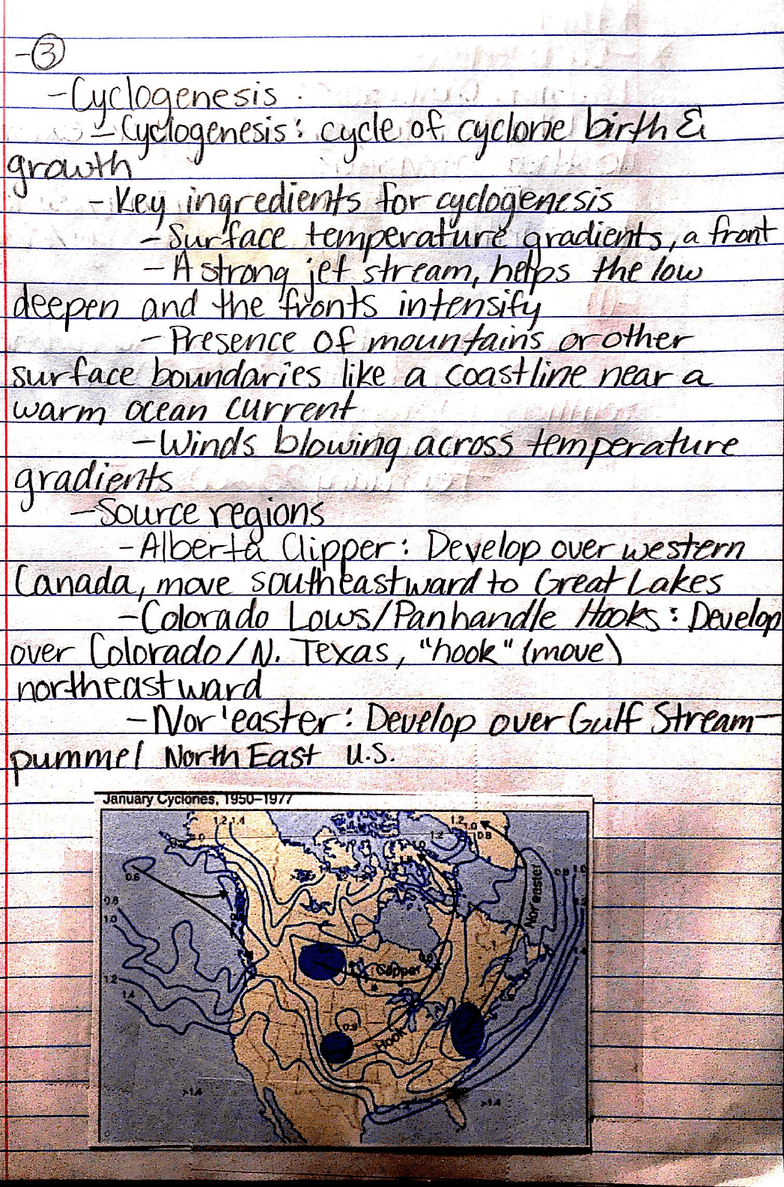 -③
-Cyclogenesis
-Cyclogenesis: cycle of cyclone birth &
growth
-Key ingredients for cyclogenesis
-Surface temperature gradients, a front
-A strong jet stream, helps the low
deepen and the fronts intensify
-Presence of mountains or other
surface boundaries like a coastline near a
warm ocean current
-Winds blowing across temperature
gradients
-Source regions
-Alberta Clipper: Develop over western
Canada, move southeastward to Great Lakes
-Colorado Lows/Panhandle Hooks: Develop
over Colorado/N. Texas, "hook" (move)
northeastward
-Nor'easter: Develop over Gulf Stream-
pummel North East U.S.
January Cyclones, 1950–1977
1.2 1.4
1.2
1.0
0.8
1.2
1.0
1.0
0.6
0.8
1.0
0.8
1.0
Nor'easter
1.2
1.4
Clipper
0.8
Hook
>1.4
>1.4